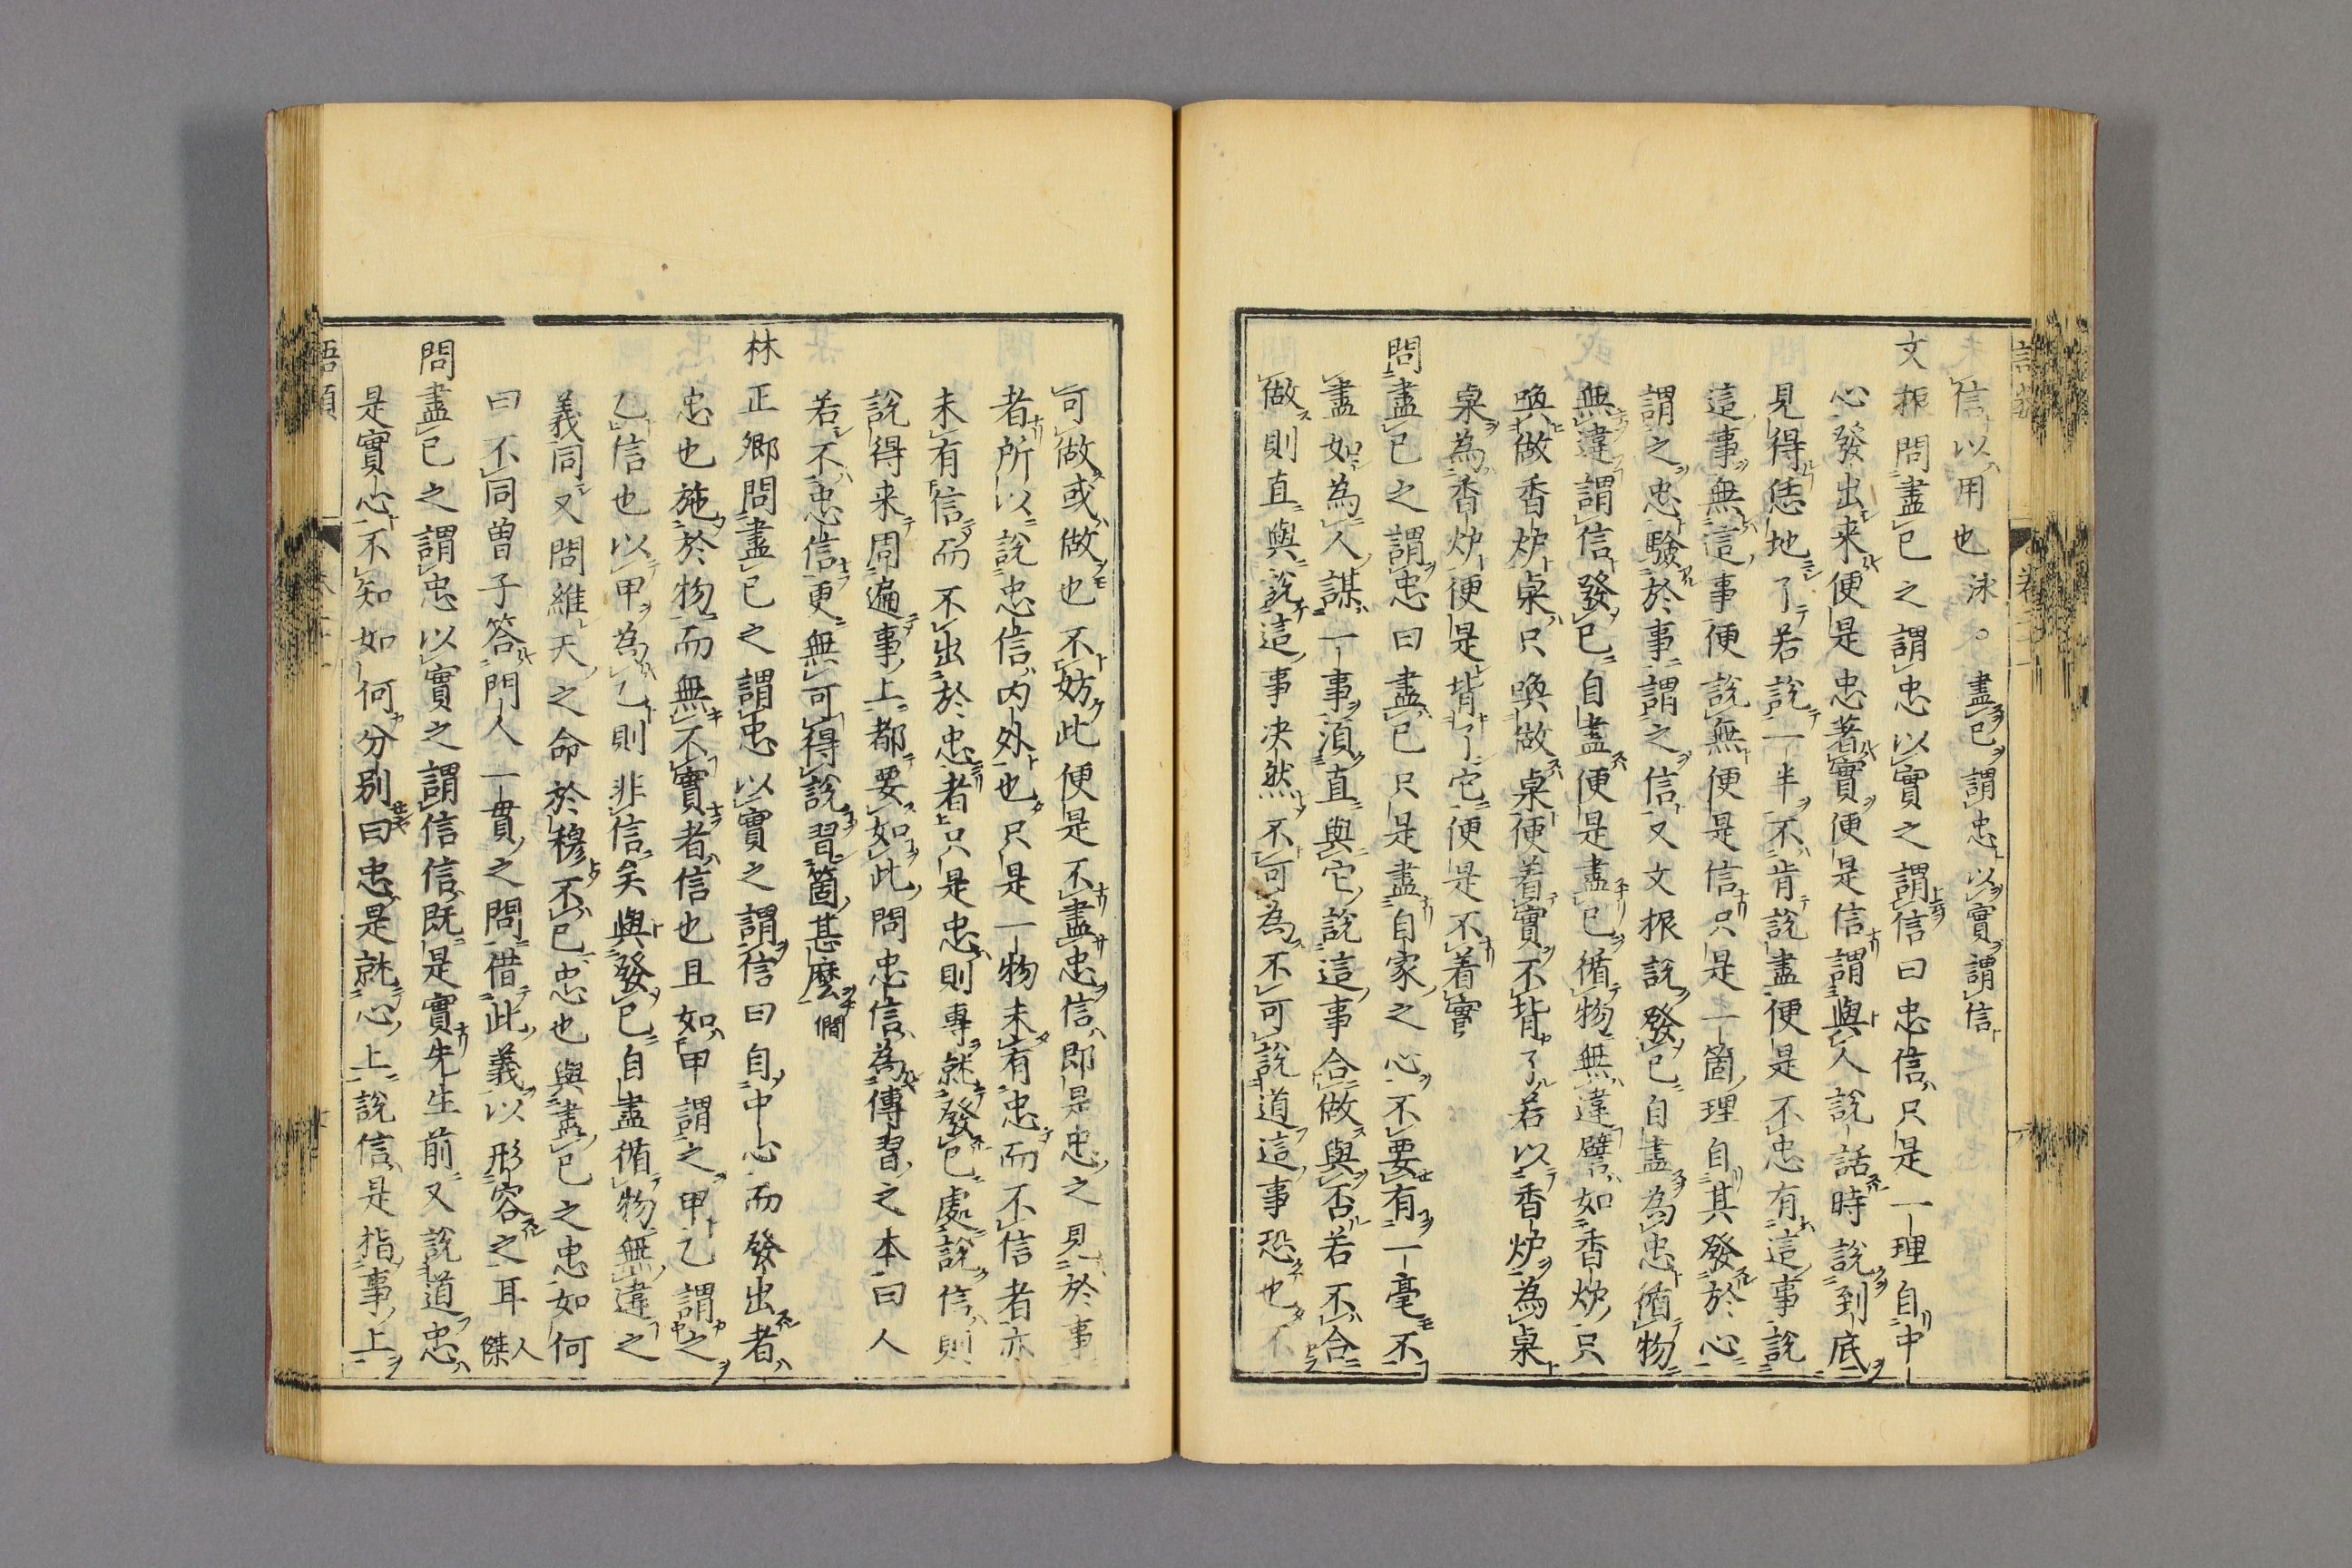 信以用也洙。盡已謂忠以實謂信
文振問盡已之謂忠以實之謂信曰忠信只是一理自中
心發出来便是忠著實便是信謂與人說話時說到底
見得恁地了若說一半不肯說盡便是不忠有這事說
這事無這事便說無便是信只是一箇理自其發於心
謂之忠驗於事謂之信又文振說發已自盡為忠循物
無違謂信發已自盡便是盡已循物無違譬如香炉只
喚做香炉桌只喚做桌便着實不背了若以香炉為桌
桌為香炉便是背了它便是不着實
問盡已之謂忠曰盡已只是盡自家之心不要有一毫不
盡如為人謀一事須直與它說這事合做與否若不合
做則直與說這事决然不可為不可說道這事恐也不
可做或做也不妨此便是不盡忠信即是忠之見於事
者所以說忠信内外也只是一物未有忠而不信者亦
未有信而不出於忠者只是忠則專就發已處說信則
說得来周遍事上都要如此問忠信為傳習之本曰人
若不忠信更無可得說習箇甚麼僩
林正卿問盡已之謂忠以實之謂信曰自中心而發出者
忠也施於物而無不實者信也且如甲謂之甲乙謂之
乙信也以甲為乙則非信矣與發已自盡循物無違之
義同又問維天之命於穆不已忠也與盡已之忠如何
曰不同曽子答門人一貫之問借此義以形容之耳人傑
問盡已之謂忠以實之謂信信既是實先生前又說道忠
是實心不知如何分别曰忠是就心上說信是指事上
語類